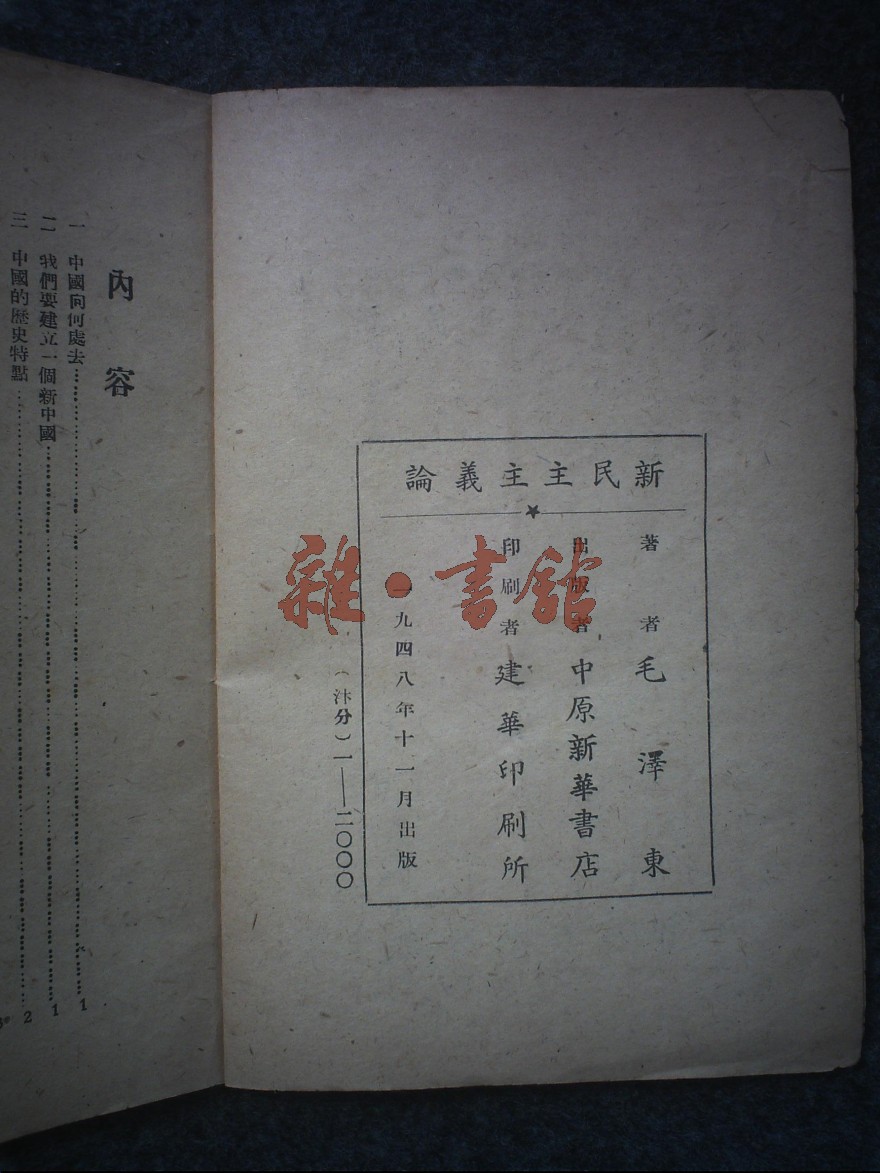 新民主主義論
著者 毛澤東
出版者 中原新華書店
印刷者 建華印刷所
一九四八年十一月出版
(汴分)一——二〇〇〇
內容
一 中國向何處去……1
二 我們要建立一個新中國……1
三 中國的歷史特點……2
雜·書館